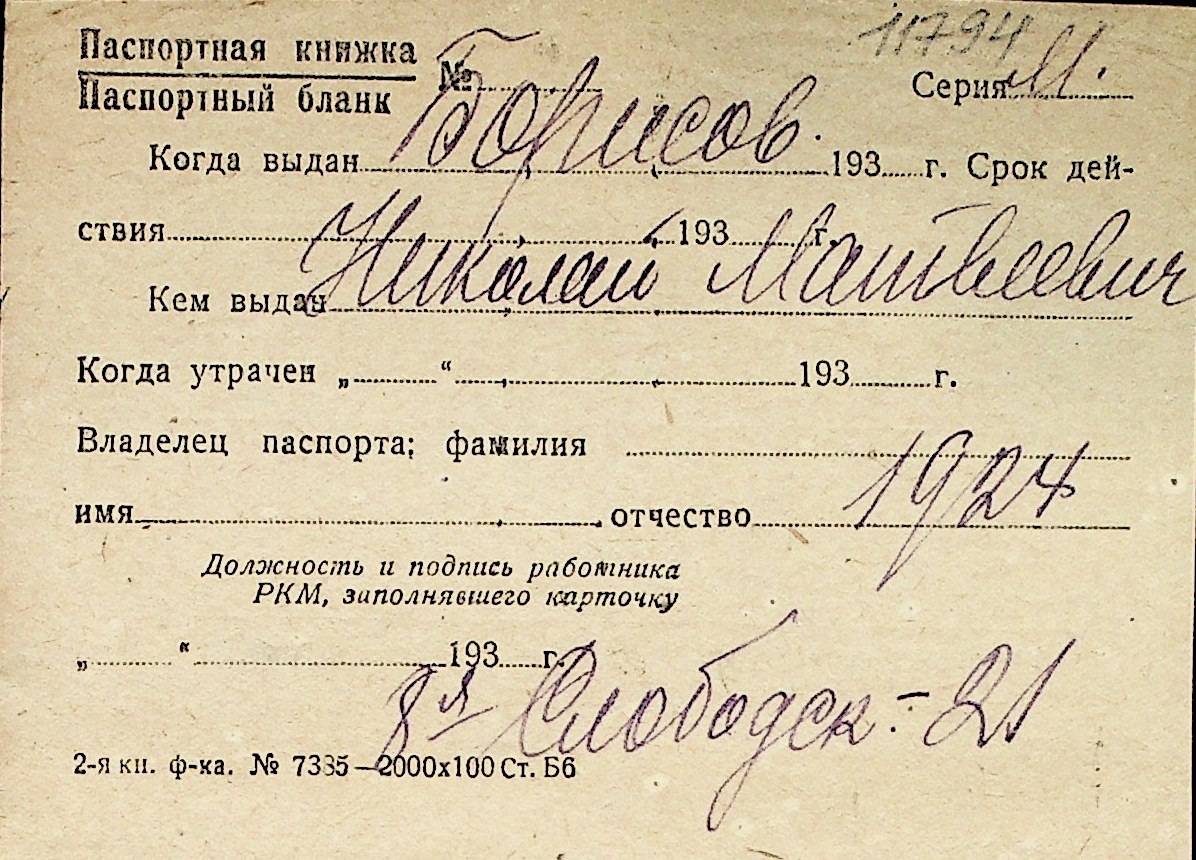 11794
Паспортная книжка
Паспортный бланк № Серия М.
Борисов.
Когда выдан 193 г. Срок дей-
ствия 193 г.
Николай Матвеевич
Кем выдан
Когда утрачен „ “ 193 г.
Владелец паспорта; фамилия
1924
имя , отчество
Должность и подпись работника
РКМ, заполнявшего карточку
„ “ 193 г.
8я Слободск. - 21
2-я кн. ф-ка. № 7385—2000х100 Ст. Б6